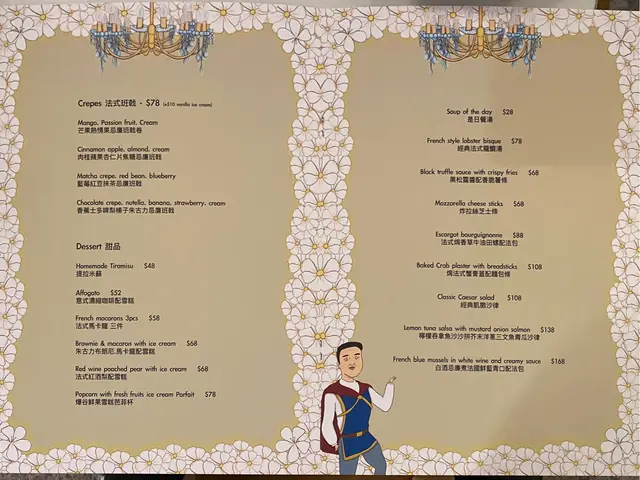 Crepes 法式班戟 - $78 (+$10 vanilla ice cream)
Mango, Passion fruit, Cream
芒果熱情果忌廉班戟卷
Cinnamon apple, almond, cream
肉桂蘋果杏仁片焦糖忌廉班戟
Matcha crepe, red bean, blueberry
藍莓紅豆抹茶忌廉班戟
Chocolate crepe, nutella, banana, strawberry, cream
香蕉士多啤梨榛子朱古力忌廉班戟
Dessert 甜品
Homemade Tiramisu $48
提拉米蘇
Affogato $52
意式濃縮咖啡配雪糕
French macarons 3pcs $58
法式馬卡龍 三件
Brownie & macaron with ice cream $68
朱古力布朗尼.馬卡龍配雪糕
Red wine poached pear with ice cream $68
法式紅酒梨配雪糕
Popcorn with fresh fruits ice cream Parfait $78
爆谷鮮果雪糕芭菲杯
Soup of the day $28
是日餐湯
French style lobster bisque $78
經典法式龍蝦湯
Black truffle sauce with crispy fries $68
黑松露醬配香脆薯條
Mozzarella cheese sticks $68
炸拉絲芝士條
Escargot bourguignonne $88
法式焗香草牛油田螺配法包
Baked Crab plaster with breadsticks $108
焗法式蟹膏蓋配麵包條
Classic Caesar salad $108
經典凱撒沙律
Lemon tuna salsa with mustard onion salmon $138
檸檬吞拿魚沙沙拼芥末洋蔥三文魚青瓜沙律
French blue mussels in white wine and creamy sauce $168
白酒忌廉煮法國鮮藍青口配法包